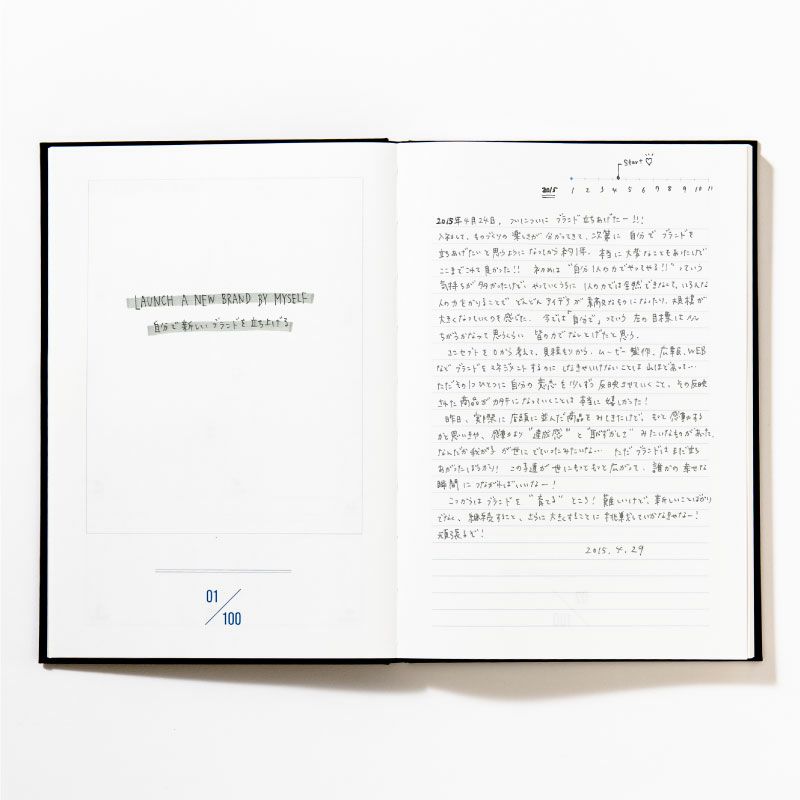 LAUNCH A NEW BRAND BY MYSELF
自分で新しいブランドを立ち上げる
01/100
Start
2015 1 2 3 4 5 6 7 8 9 10 11
2015年4月24日、ついについに ブランド立ちあげたー!!!
入社して、ものづくりの楽しさが 分かってきて、次第に 自分で ブランドを
立ちあげたいと思うようになってから約1年。本当に大変なこともあったけど
ここまでこれて良かった!! 初めは "自分1人の力でやってやる!" っていう
気持ちが多かったけど、やっていくうちに 1人の力では全然できなくて、いろんな
人の力をかりることで どんどん アイデアが 素敵なものになったり、規模が
大きくなっていくのを感じた。今では「自分で」っていう 左の目標は
ちがうかなって思うくらい 皆の力でなしとげたと思う。
コンセプトを0から考えて、見積もりから、ムービー製作、広報、WEB
などブランドをマネジメントするのに しなきゃいけないことは 山ほどあって…
ただその1つひとつに自分の意志を少しずつ反映させていくこと、その反映
された商品がカタチになっていくことは 本当に嬉しかった!
昨日、実際に店頭に並んだ商品をみてきたけど、もっと感動する
かと思いきや、感動より "達成感" と "恥ずかしさ" みたいなものがあった。
なんだか我が子が世にでていったみたいな… ただ ブランドは まだ立ち
あがったばっかり! この子達が 世にもっともっと広がって、誰かの幸せな
瞬間に つながればいいなー!
こっからは ブランドを "育てる" ところ! 難しいけど、新しいことばかり
でなく、継続すること、さらに大きくすることに挑戦していかなきゃなー!
頑張るぞ!
2015. 4. 29